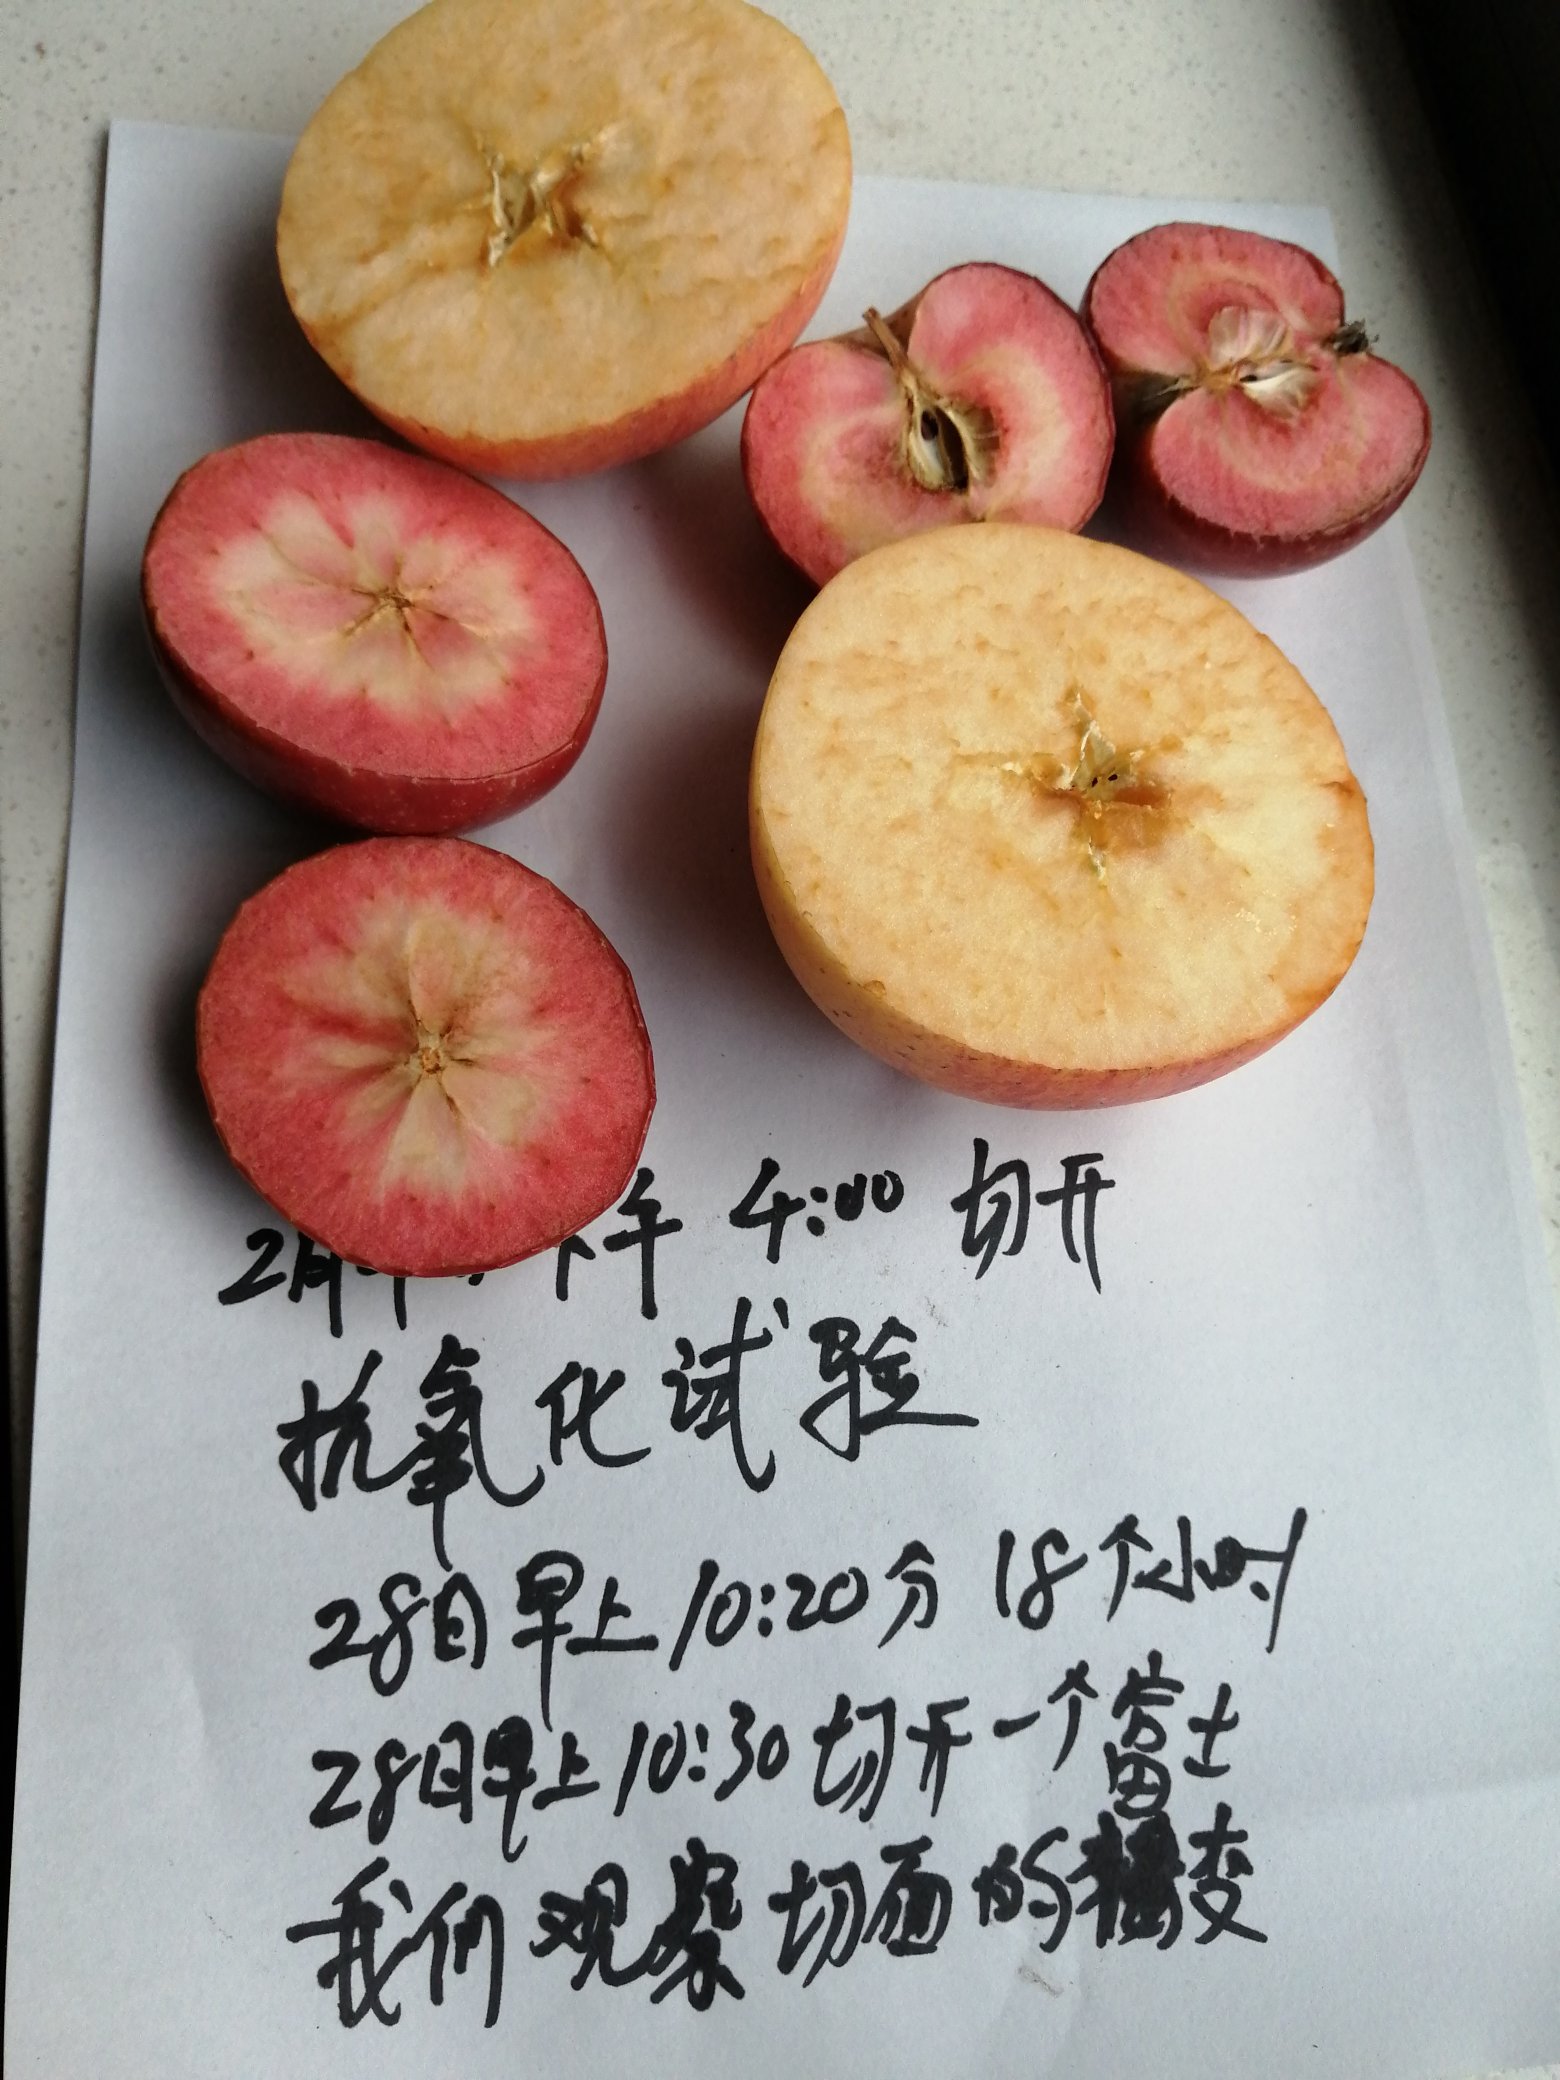 2月 下午 4:00 切开
抗氧化试验
28日早上10:20分 18个小时
28日早上10:30切开一个富士
我们观察切面的褐变